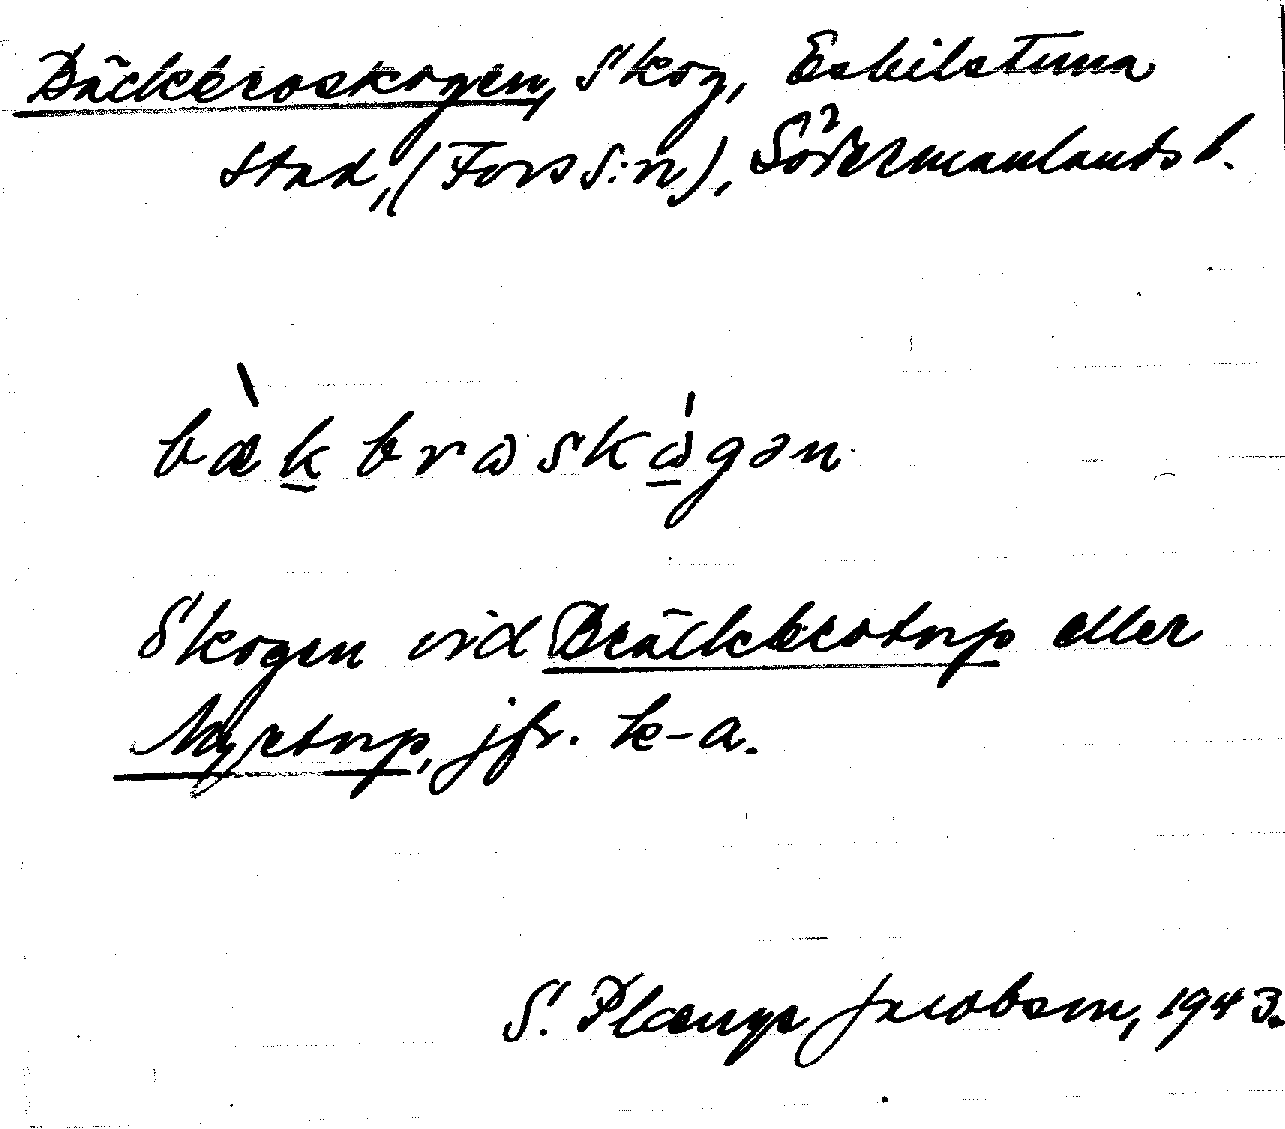 Bäckbroskogen, Skog, Eskilstuna
stad, (Fors s:n), Södermanlands l.
bækbrωskωgən
Skogen vid Bräckbrotorp eller
Nyrtorp, jfr. k-a.
S. Plænge Jacobson, 1943.